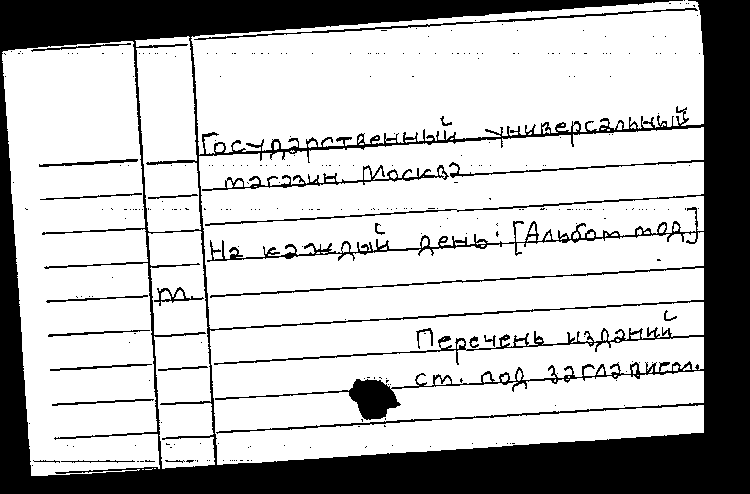 Государственный универсальный
магазин. Москва.
На каждый день: [Альбом мод]
т.
Перечень изданий
см. под заглавием.